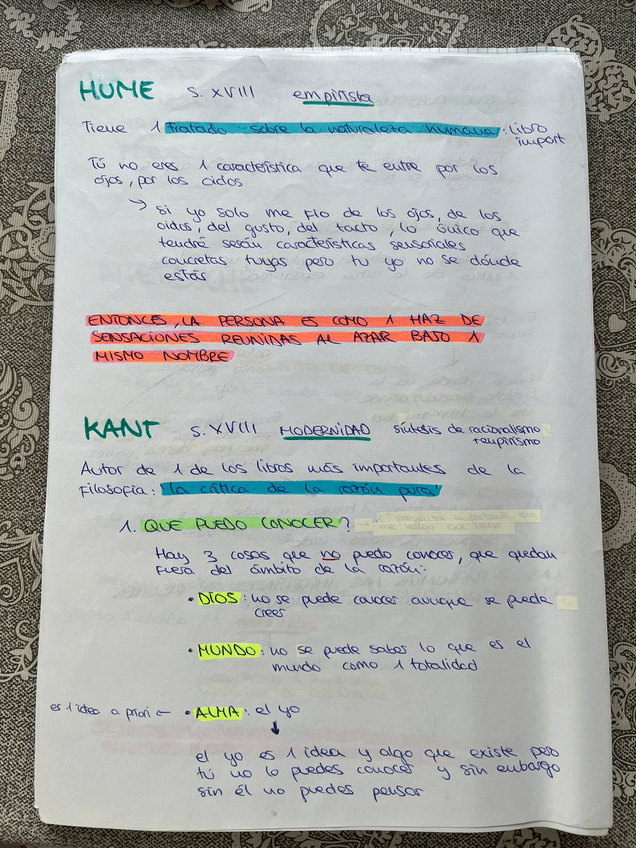 HUME S. XVIII empirista
Tiene 1 tratado sobre la naturaleza humana: libro
import
Tú no eres 1 característica que te entre por los
ojos, por los oidos
→ si yo solo me fio de los ojos, de los
oidos, del gusto, del tacto, lo único que
tendré serán características sensoriales
concretas tuyas pero tu yo no se dónde
estás
ENTONCES, LA PERSONA ES COMO 1 HAZ DE
SENSACIONES REUNIDAS AL AZAR BAJO 1
MISMO NOMBRE
KANT S. XVIII MODERNIDAD síntesis de racionalismo
+ empirismo
Autor de 1 de los libros más importantes de la
Filosofía: "la crítica de la razón pura"
1. QUE PUEDO CONOCER?
Hay 3 cosas que no puedo conocer, que quedan
fuera del ámbito de la razón:
• DIOS: no se puede conocer aunque se puede
creer
• MUNDO: no se puede saber lo que es el
mundo como 1 totalidad
es 1 idea a priori ← • ALMA: el yo
↓
el yo es 1 idea y algo que existe pero
tú no lo puedes conocer y sin embargo
sin él no puedes pensar